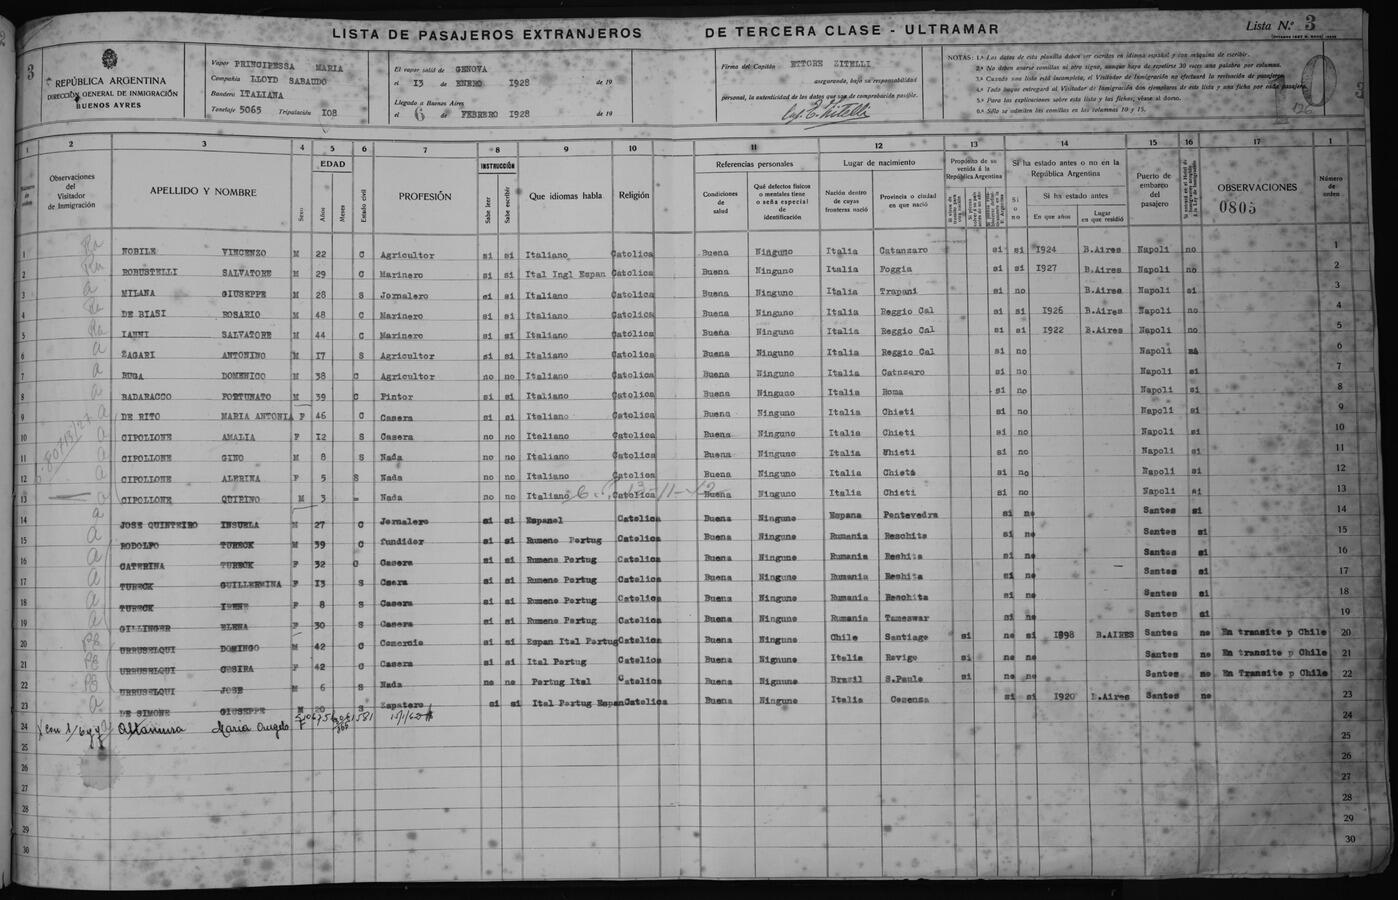 LISTA DE PASAJEROS EXTRANJEROS DE TERCERA CLASE - ULTRAMAR
Lista N.º 3
3
REPÚBLICA ARGENTINA
DIRECCIÓN GENERAL DE INMIGRACIÓN
BUENOS AYRES
Vapor PRINCIPESSA MARIA
Compañía LLOYD SABAUDO
Bandera ITALIANA
Tonelaje 5065 Tripulación 108
El vapor salió de GENOVA
el 13 de ENERO 1928 de 19
Llegado a Buenos Aires
el 6 de FEBRERO 1928 de 19
Firma del Capitán ETTORE ZITELLI
asegurando, bajo su responsabilidad
personal, la autenticidad de los datos que son de comprobación posible.
Cap. E. Zitelli
NOTAS: 1.ª Los datos de esta planilla deben ser escritos en idioma español y con máquina de escribir.
2.ª No deben usarse comillas ni otro signo, aunque haya de repetirse 30 veces una palabra por columna.
3.ª Cuando una lista está incompleta, el Visitador de Inmigración no efectuará la revisación de pasajeros.
4.ª Todo buque entregará al Visitador de Inmigración dos ejemplares de esta lista y una ficha por cada pasajero.
5.ª Para las explicaciones sobre esta lista y las fichas, véase al dorso.
6.ª Sólo se admiten las comillas en las columnas 10 y 15.
126
1 2 3 4 5 6 7 8 9 10 11 12 13 14 15 16 17 1
Observaciones del Visitador de Inmigración
APELLIDO Y NOMBRE
Sexo
EDAD
Años
Meses
Estado civil
PROFESIÓN
INSTRUCCIÓN
Sabe leer
Sabe escribir
Que idiomas habla
Religión
Referencias personales
Condiciones de salud
Qué defectos físicos o mentales tiene o seña especial de identificación
Lugar de nacimiento
Nación dentro de cuyas fronteras nació
Provincia o ciudad en que nació
Propósito de su venida á la República Argentina
Si ha estado antes o no en la República Argentina
Si o no
Si ha estado antes
En que años
Lugar en que residió
Puerto de embarco del pasajero
OBSERVACIONES
0805
Número de orden
1 NOBILE VINCENZO M 22 C Agricultor si si Italiano Catolica Buena Ninguno Italia Catanzaro si si 1924 B.Aires Napoli no 1
2 ROBUSTELLI SALVATORE M 29 C Marinero si si Ital Ingl Espan Catolica Buena Ninguno Italia Foggia si si 1927 B.Aires Napoli no 2
3 MILANA GIUSEPPE M 28 S Jornalero si si Italiano Catolica Buena Ninguno Italia Trapani si no B.Aires Napoli si 3
4 DE BIASI ROSARIO M 48 C Marinero si si Italiano Catolica Buena Ninguno Italia Reggio Cal si si 1926 B.Aires Napoli no 4
5 IANNI SALVATORE M 44 C Marinero si si Italiano Catolica Buena Ninguno Italia Reggio Cal si si 1922 B.Aires Napoli no 5
6 ZAGARI ANTONINO M 17 S Agricultor si si Italiano Catolica Buena Ninguno Italia Reggio Cal si no Napoli 6
7 RUGA DOMENICO M 38 C Agricultor no no Italiano Catolica Buena Ninguno Italia Catnzaro si no Napoli si 7
8 BADARACCO FORTUNATO M 39 C Pintor si si Italiano Catolica Buena Ninguno Italia Roma si no Napoli si 8
9 DE RITO MARIA ANTONIA F 46 C Casera si si Italiano Catolica Buena Ninguno Italia Chieti si no Napoli si 9
10 CIPOLLONE AMALIA F 12 S Casera no no Italiano Catolica Buena Ninguno Italia Chieti si no Napoli si 10
11 CIPOLLONE GINO M 8 S Nada no no Italiano Catolica Buena Ninguno Italia Chieti si no Napoli si 11
12 CIPOLLONE ALERINA F 5 S Nada no no Italiano Catolica Buena Ninguno Italia Chieta si no Napoli si 12
13 CIPOLLONE QUIRINO M 3 - Nada no no Italiano Catolica Buena Ninguno Italia Chieti si no Napoli si 13
14 JOSE QUINTEIRO INSUELA M 27 C Jornalero si si Espanol Catolica Buena Ninguno Espana Pontevedra si no Santos si 14
15 RODOLFO TURECK M 39 C fundidor si si Rumeno Portug Catolica Buena Ninguno Rumania Reschita si no Santos si 15
16 CATERINA TURECK F 32 C Casera si si Rumeno Portug Catolica Buena Ninguno Rumania Reshita si no Santos si 16
17 TURECK GUILLERMINA F 13 S Csera si si Rumeno Portug Catolica Buena Ninguno Rumania Reshita si no Santos si 17
18 TURECK IRENE F 8 S Casera si si Rumeno Portug Catolica Buena Ninguno Rumania Reschita si no Santos si 18
19 GILLINGER ELENA F 30 S Casera si si Rumeno Portug Catolica Buena Ninguno Rumania Temeswar si no Santos si 19
20 URRUSELQUI DOMINGO M 42 C Comercio si si Espan Ital Portug Catolica Buena Ninguno Chile Santiago si no si 1898 B.AIRES Santos no En transito p Chile 20
21 URRUSELQUI CESIRA F 42 C Casera si si Ital Portug Catolica Buena Nignuno Italia Rovigo si no no Santos no En transito p Chile 21
22 URRUSELQUI JOSE M 6 S Nada no no Portug Ital Catolica Buena Nignuno Brazil S.Paulo si no no Santos no En Transito p Chile 22
23 DE SIMONE GIUSEPPE M 20 S Zapatero si si Ital Portug Espan Catolica Buena Ninguno Italia Cosenza si si 1920 B.Aires Santos no 23
24 Altamura Maria Angela F 24
25 25
26 26
27 27
28 28
29 29
30 30